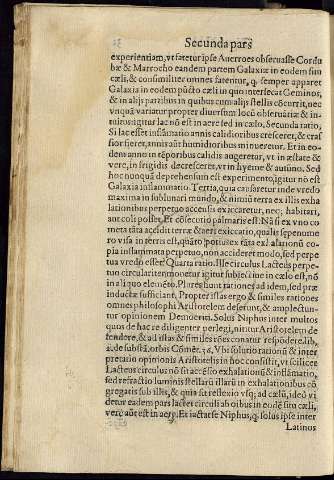 Secunda pars
experientiam, vt fatetur ipse Auerroes obseruasse Cordu
bæ & Marrocho eandem partem Galaxiæ in eodem situ
cæli, & consimiliter omnes fatentur, q̃ semper apparet
Galaxia in eodem pũcto cæli in quo intersecat Geminos,
& in alijs partibus in quibus cum alijs stellis cõcurrit, nec
vnquã variatur propter diuersum locũ obseruãtiæ & in-
tuitos igitur lac nõ est in aere sed in cælo. Secunda ratio,
Si lac esset inflãmatio annis calidioribus cresceret, & cras
sior fieret, annis aũt humidioribus minueretur. Et in eo-
dem anno in tẽporibus calidis augeretur, vt in æstate &
vere, in frigidis decresceret, vt in hyeme & autũno. Sed
hoc nunquã deprehensum est experimento, igitur nõ est
Galaxia inflammatio. Tertia, quia causaretur inde vredo
maxima in sublunari mundo, & nimiũ terra ex illis exha
lationibus perpetuo accensis exiccaretur, nec habitari,
aut coli posset. Et cõsecutio palmaris est. Nã si ex vno co
meta tãta accidit terræ & aeri exiccatio, qualis sepenume
ro visa in terris est, quãto potius ex tãta exhalationũ co-
pia inflammata perpetuo, non accideret modo, sed perpe
tua vredo esset? Quarta ratio. Ille circulus Lacteus perpe
tuo circulariter mouetur igitur subiectiue in cælo est, nõ
in aliquo elemẽto. Plures sunt rationes ad idem, sed præ
inductæ sufficiant. Propter istas ergo & similes rationes
omnes philosophi Aristotelem deserunt, & amplectun-
tur opinionem Democriti. Solus Niphus inter multos
quos de hac re diligenter perlegi, nititur Aristotelem de
fendere, & ad istas & alias cõsimiles rões conatur respõdere,
Vbi solutio rationũ & inter
pretatio opinionis Aristotelis in hoc consistit, vt scilicet
Lacteus circulus nõ sit accẽsio exhalationũ & inflãmatio,
sed refractio luminis stellarũ illarũ in exhalationibus cõ
gregatis sub illis, & quia sit reflexio vsq; ad cælũ, ideo vi
detur eadem pars lactei circuli ab oĩbus in eodẽ situ cæli,
vere aũt est in aere. Et iactat se Niphus, q̃ solus ipse inter
Latinos